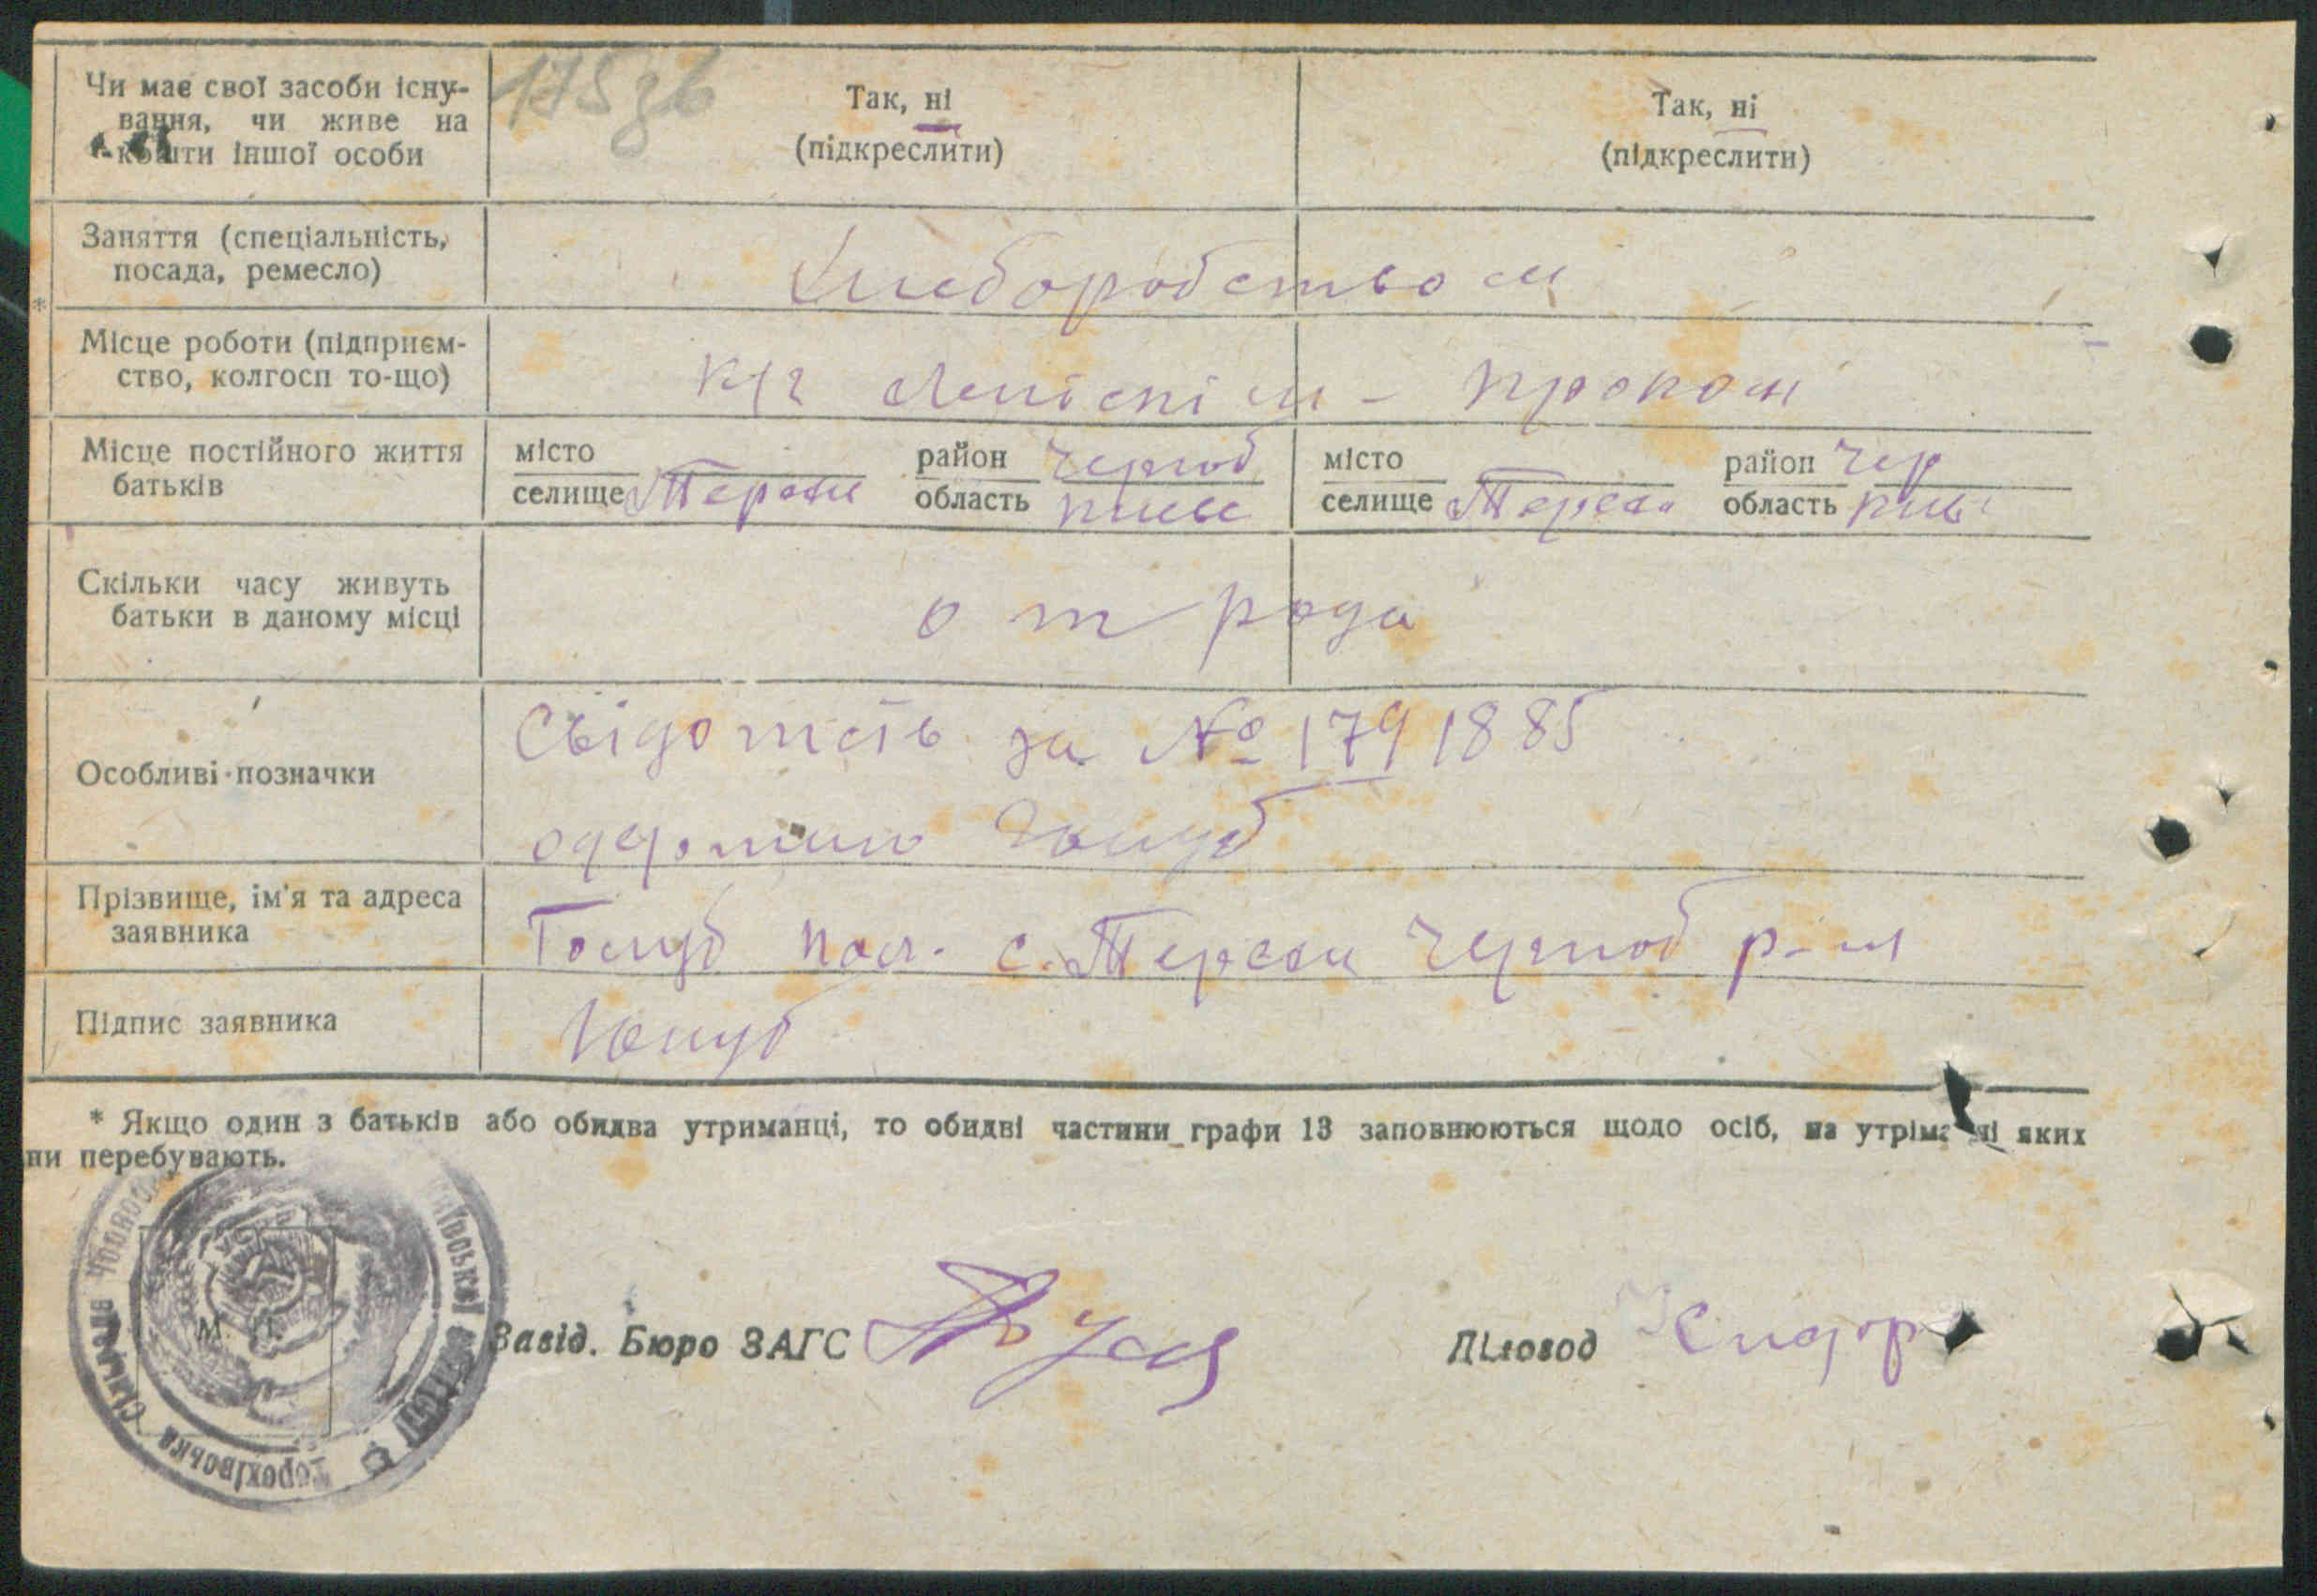 175 зв
Чи має свої засоби існу-
вання, чи живе на
кошти іншої особи
Так, ні
(підкреслити)
Так, ні
(підкреслити)
Заняття (спеціальність,
посада, ремесло)
Хлеборобством
*
Місце роботи (підприєм-
ство, колгосп то-що)
к/г
Місце постійного життя
батьків
місто
селище
район Чорноб
область Київс
місто
селище
район Чер
область Київ
Скільки часу живуть
батьки в даному місці
от рода
Особливі позначки
Свідотсть за № 179 1885
Голуб
Прізвище, ім'я та адреса
заявника
Голуб с. Чорноб р-н
Підпис заявника
Голуб
* Якщо один з батьків або обидва утриманці, то обидві частини графи 13 заповнюються щодо осіб, на утріманні яких
ни перебувають.
М. П.
Завід. Бюро ЗАГС
Діловод